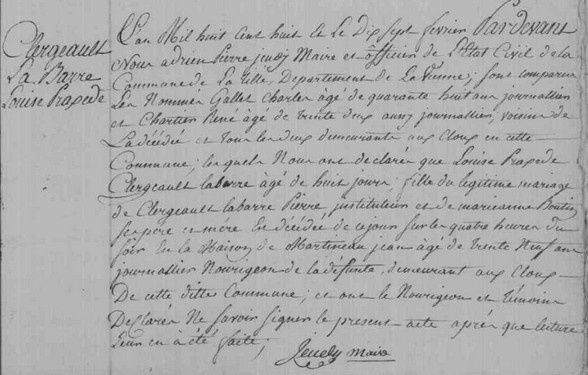 Clergeault
La Barre
Louise Praxede
L'an Mil huit cent huit et Le Dix sept fevrier Pardevant
Nous adrien Pierre Maire et officier de L'Etat Civil de la
Commune de Département de La Vienne; sont comparus
Les Nommés Gallet Charles âgé de quarante huit ans journallier
et Chartier René âgé de trente deux ans aussy journallier, voisins de
La décédée et tous les deux demeurants aux Cloux en cette
Commune; lesquels Nous ont déclaré que Louise Praxede
Clergeault labarre âgé de huit jours; fille du legitime mariage
de Clergeault labarre Pierre instituteur et de marieanne
ses pere et mere Est décédée de ce jour sur les quatre heures du
soir En la Maison de Martineau jean âgé de trente Neuf ans
journallier Nourigeon de la défunte, demeurant aux Cloux
De cette ditte Commune; et ont le Nourigeon et témoins
Déclarés Ne savoir signer le present acte après que lecture
Leur en a été faite;
maire